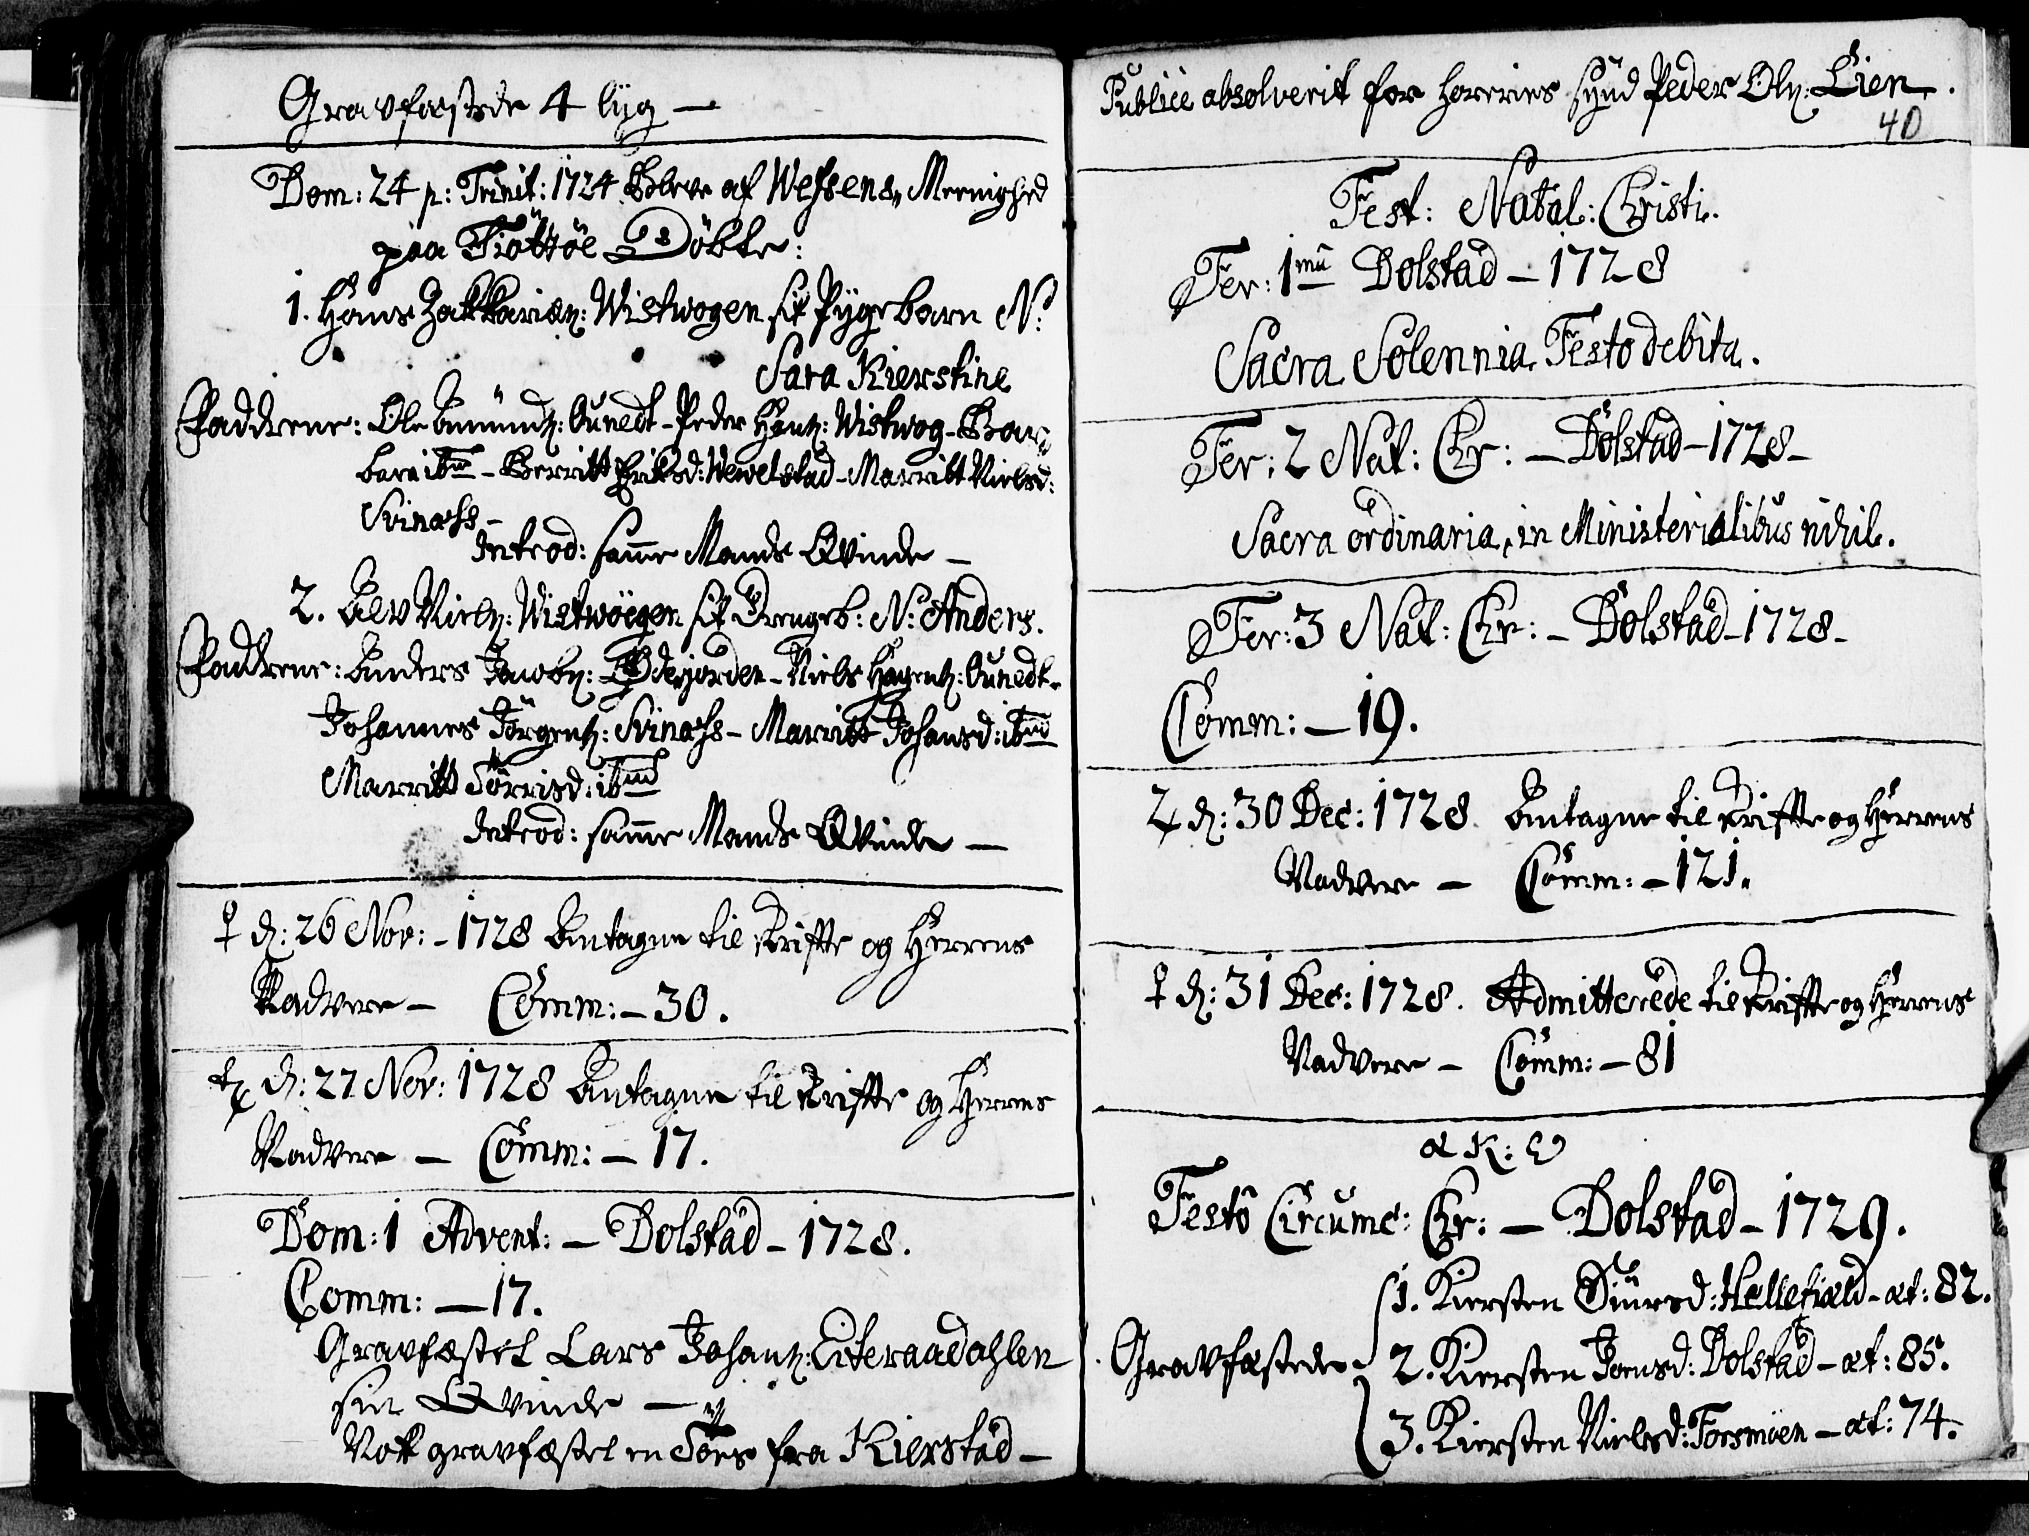 Gravfæstede 4 lijg —
Dom: 24 p: Trinit: 1724 Bleve af Wefsens Meenighed
paa Tiøttøe Døbte:
1. Hans Zakkariæs: Wistwogen sit Pigebarn N:
Sara Kierstine
Faddrene: Ole Amunds: Aunedt - Peder Hans: Wistwog - Bar
bara ibm - Berritt Eriksd: Wewelstad - Marritt Nielsd:
Svinaess -
Introd: samme Mands Qvinde —
2. Niels: Wistwogen sit Drengeb: N: Anders.
Faddrene: Anders Jacobs: Ødejorden - Niels Hagens: Aunedt -
Johannes Jørgens: Svinaess - Marritt Johansd: ibm
Marritt Tørrisd: ibm
Introd: samme Mands Qvinde —
♀ d: 26 Nov: - 1728 Antagne til Skrifte og Herrens
Nadvere — Comm: — 30.
d: 27 Nov: 1728 Antagne til Skrifte og Herrens
Nadvere — Comm: — 17.
Dom: 1 Advent: — Dolstad - 1728.
Comm: — 17.
Gravfæstet Lars Johans: Eiteraadahlen
sin Qvinde —
Nok gravfæstet en fra Kierstad —
Publicè absolverit for horeries synd Peder Ols: Lien.
40
Fest: Natal: Christi.
Fer: 1mu Dolstad - 1728
Sacra Solennia Festo debita.
Fer: 2 Nat: Chr: — Dolstad - 1728 -
Sacra ordinaria, in Ministerialibus nihil.
Fer: 3 Nat: Chr: - Dolstad - 1728 -
Comm: — 19.
♃ d: 30 Dec: 1728 Antagne til Skrifte og Herrens
Nadvere — Comm: — 121.
♀ d: 31 Dec: 1728. Admitterede til Skrifte og Herrens
Nadvere — Comm: — 81
α κ: ω
Festo Circumc: Chr: — Dolstad - 1729.
1. Kiersten Siursd: Hellefiæld - æt: 82.
Gravfæstede 2. Kiersten Jonsd: Dolstad - æt: 85.
3. Kiersten Nielsd: Forsmoen - æt: 74.